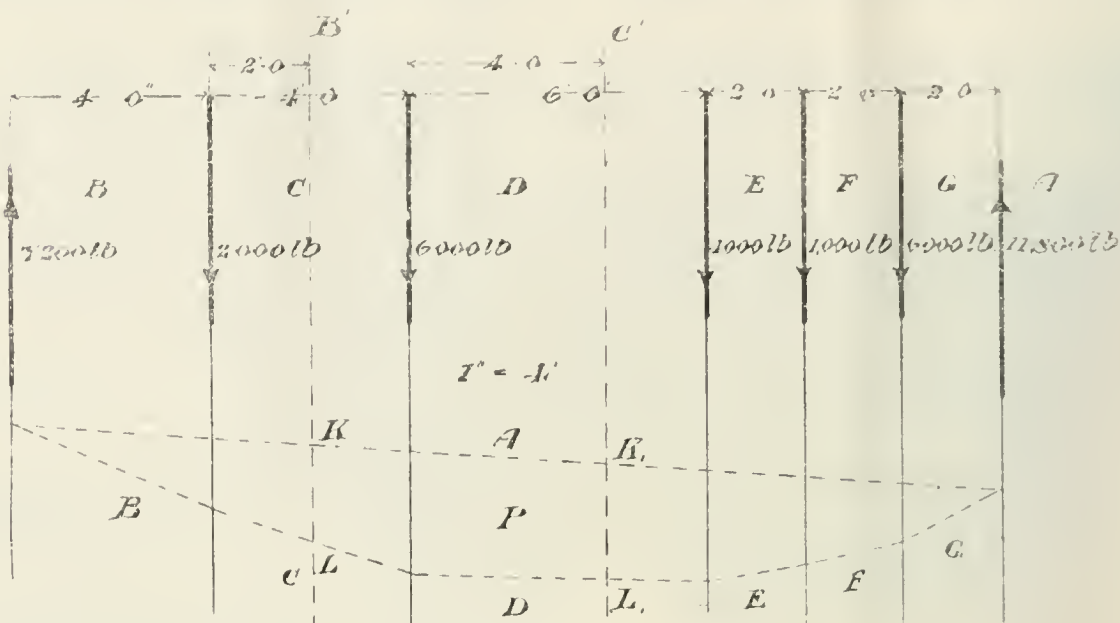 B' C'
2'0 4 0
4 0" 4'0 6'0' 2 0 2 0 2 0
B C D E F G A
2000lb 6000lb 1000lb 1,000lb 6000lb 11,800lb
1" = 4'
K A K,
B P G
C L
D L, E F